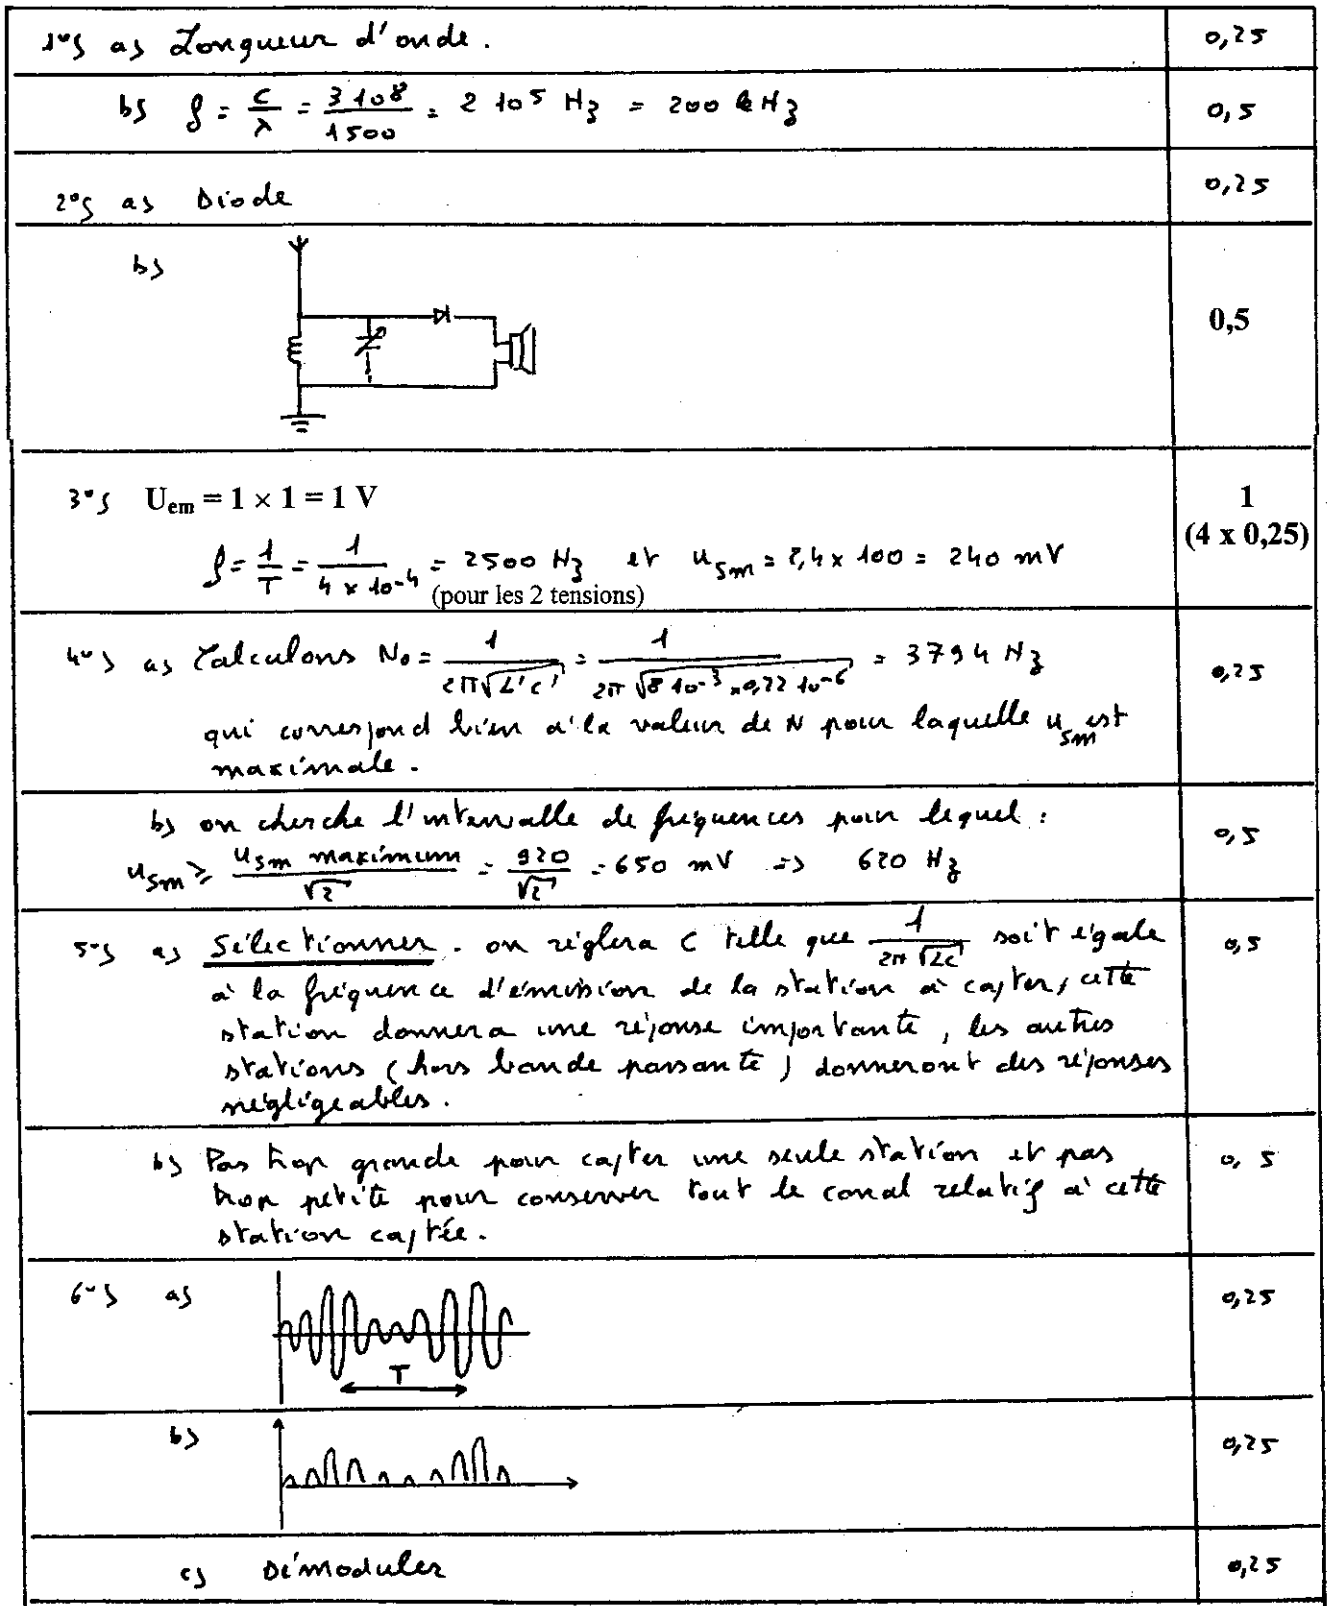 1°) a) Longueur d'onde. 0,25
b) f = c/λ = 3 10^8/1500 = 2 10^5 Hz = 200 kHz 0,5
2°) a) Diode 0,25
b) 0,5
3°) U_em = 1 × 1 = 1 V 1
(4 x 0,25)
f = 1/T = 1/(4 × 10^-4) = 2500 Hz et u_sm = 2,4 x 100 = 240 mV
(pour les 2 tensions)
4°) a) Calculons N₀ = 1/(2π√L'C') = 1/(2π√(8 10^-3 × 0,22 10^-6)) = 3794 Hz 0,25
qui correspond bien à la valeur de N pour laquelle u_sm est
maximale.
b) on cherche l'intervalle de fréquences pour lequel : 0,5
u_sm ≥ u_sm maximum/√2 = 920/√2 = 650 mV => 620 Hz
5°) a) Sélectionner. on règlera C telle que 1/(2π√LC) soit égale 0,5
à la fréquence d'émission de la station à capter, cette
station donnera une réponse importante, les autres
stations (hors bande passante) donneront des réponses
négligeables.
b) Pas trop grande pour capter une seule station et pas 0,5
trop petite pour conserver tout le canal relatif à cette
station captée.
6°) a) 0,25
T
b) 0,25
c) Démoduler 0,25